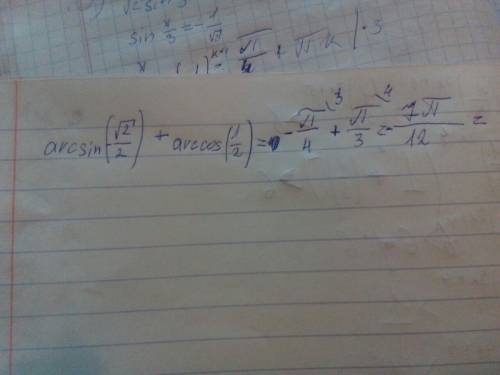 √2 sin 3
sin x/3 = -1/√2
x (-1)^(k+1) π/4 + πk | · 3
arcsin(-√2/2) + arccos(1/2) = -π/4 \3 + π/3 \4 = -7π/12 =